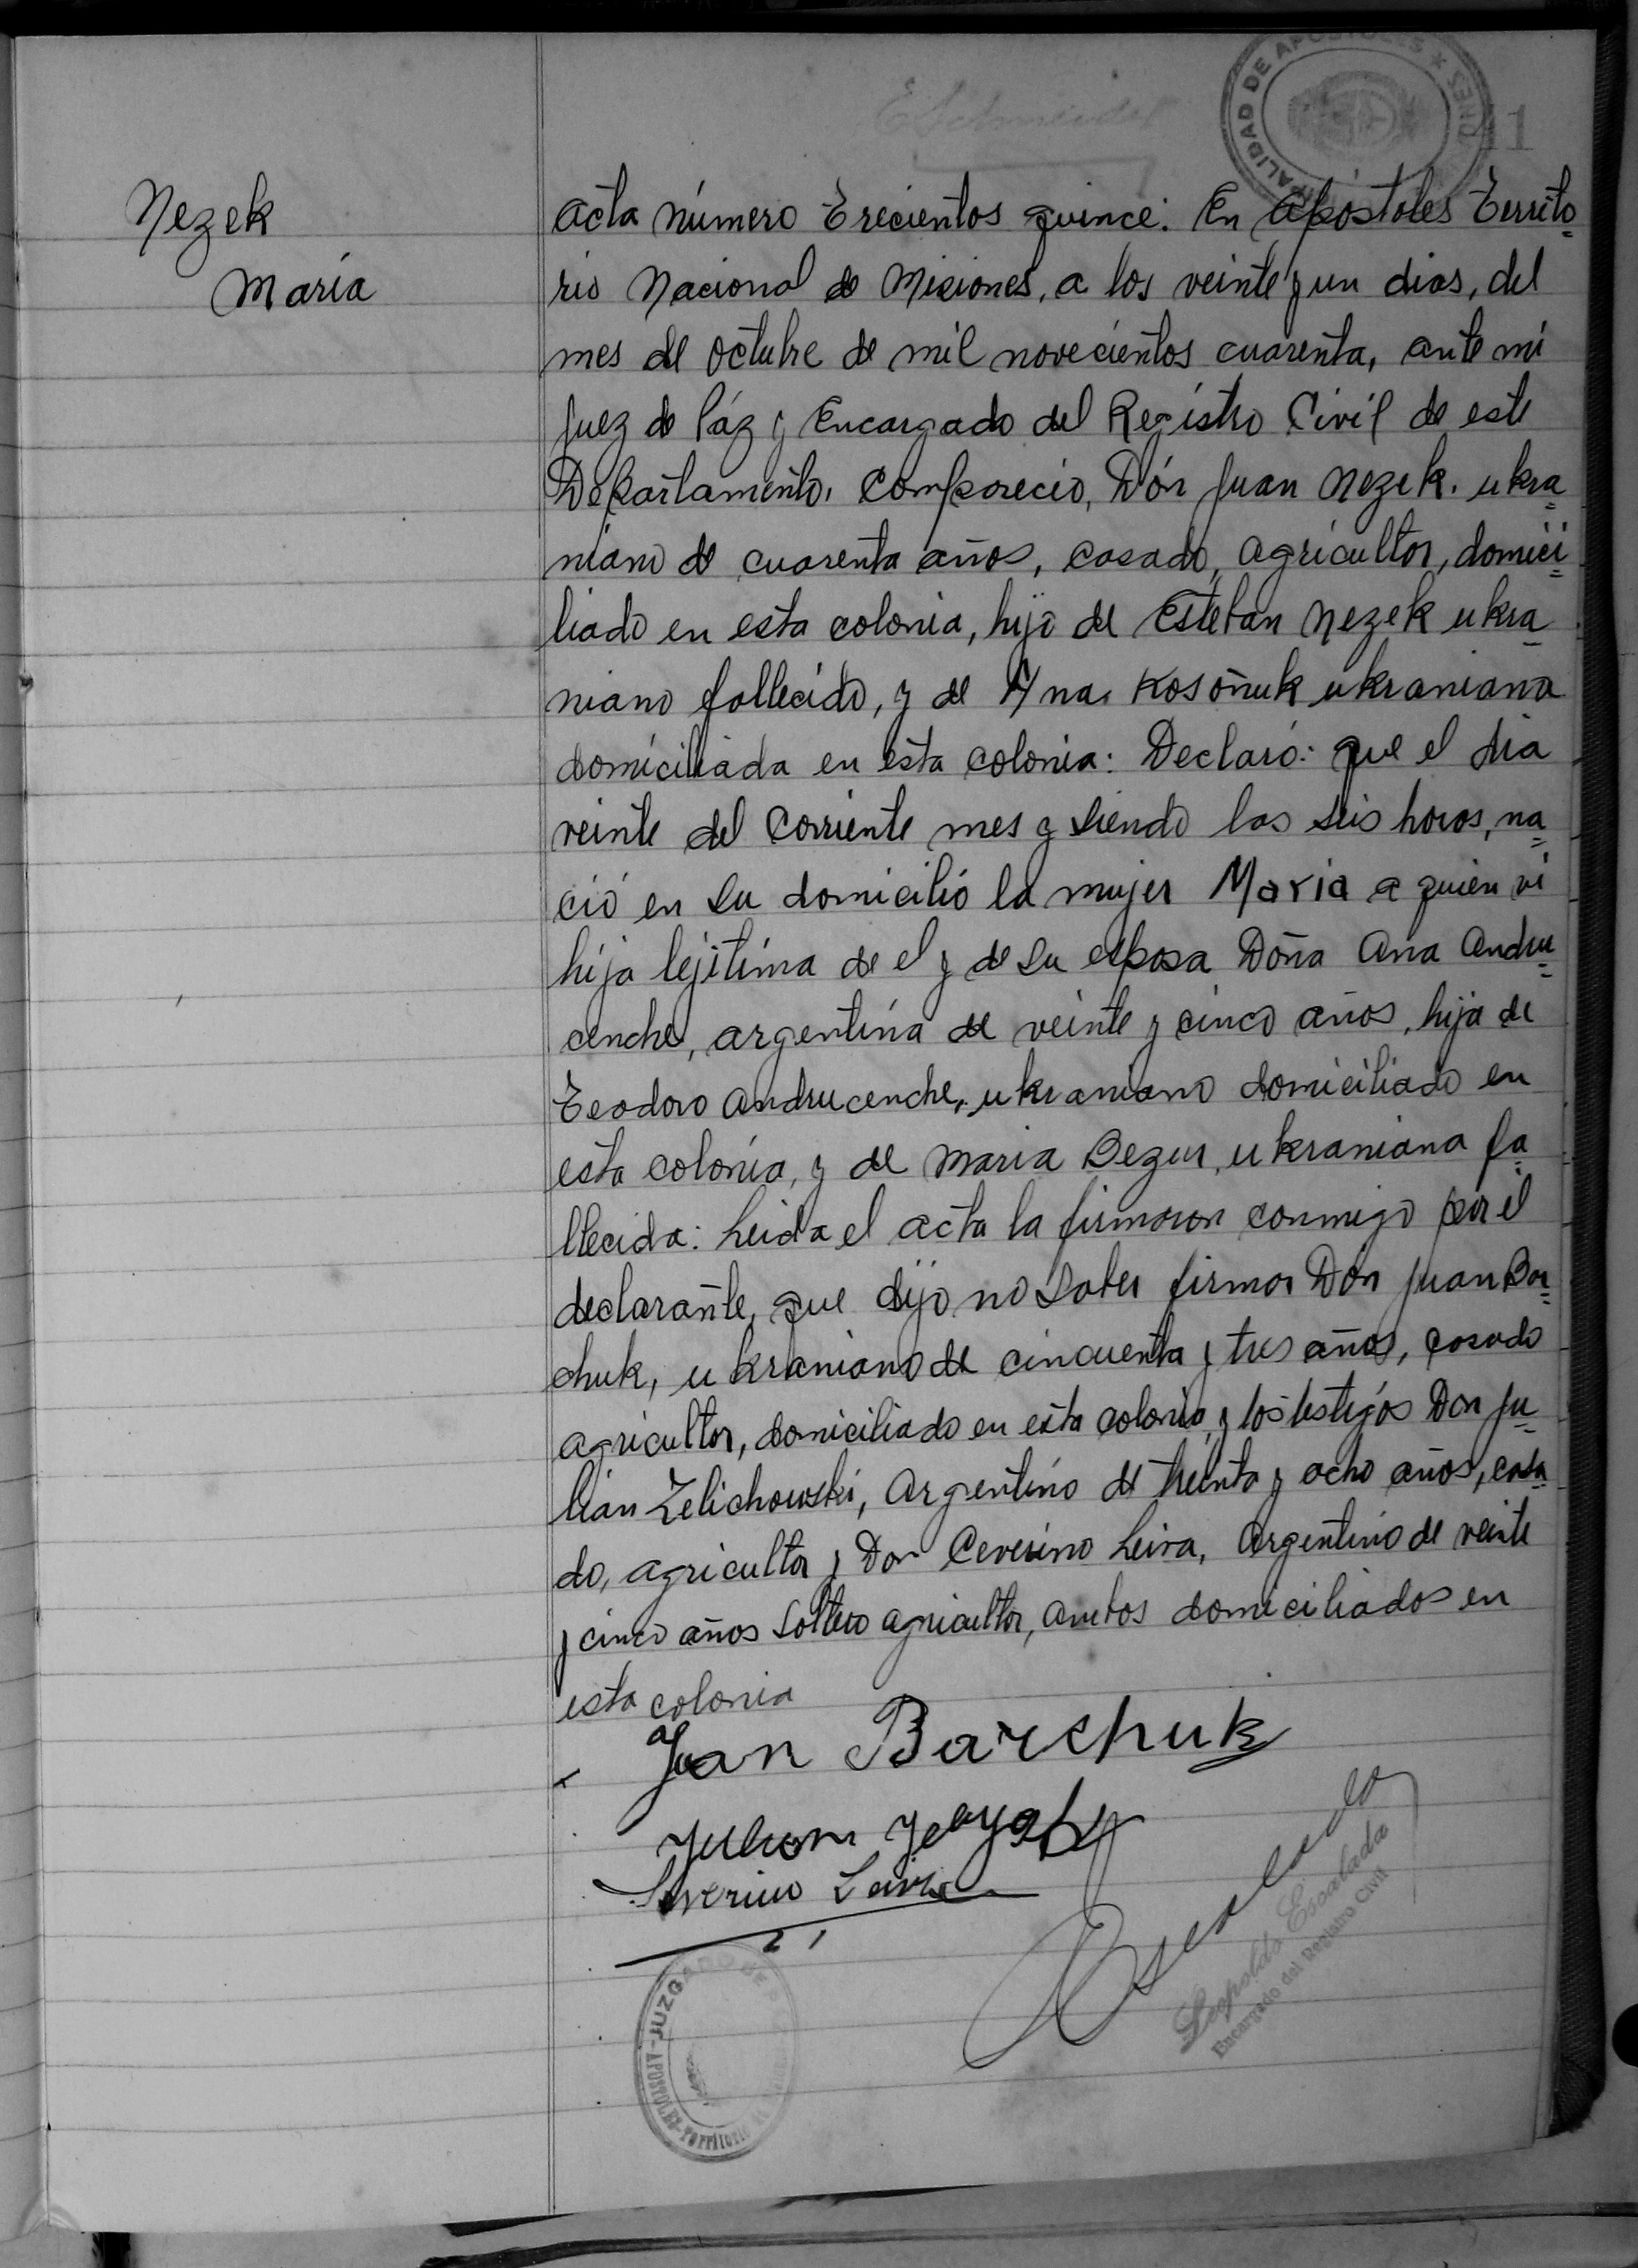 ESchneider
MUNICIPALIDAD DE APOSTOLES * MISIONES
Nezek
María
acta número Trecientos quince: En Apóstoles Territo=
rio Nacional de Misiones, a los veinte y un dias, del
mes de octubre de mil novecientos cuarenta, ante mi
Juez de Páz y Encargado del Registro Civil de este
Departamento, Comparecio, Dón Juan Nezek. ukra=
niano de cuarenta años, casado, agricultor, domici=
liado en esta colonia, hijo de Esteban Nezek ukra=
niano fallecido, y de Ana Kosoñuk ukraniana
domiciliada en esta colonia: Declaró: que el dia
veinte del corriente mes y siendo las seis horas, na=
ció en su domicilio la mujer Maria a quien vi
hija lejitima de el y de su esposa Doña Ana Andru=
cenche, argentina de veinte y cinco años, hija de
Teodoro Andrucenche, ukraniano domiciliado en
esta colonia, y de Maria Bezur, ukraniana fa=
llecida: Leida el acta la firmaron conmigo por el
declarante, que dijo no saber firmar Dón Juan Bar=
chuk, ukraniano de cincuenta y tres años, casado
agricultor, domiciliado en esta colonia, y los testigos Don Ju=
lián Zelichowski, Argentino de treinta y ocho años, casa=
do, agricultor y Don Ceverino Leiva, Argentino de veinte
y cinco años soltero agricultor, ambos domiciliados en
esta colonia
Juan Barchuk
Julian
Severino Leiva
Escalada
Leopoldo Escalada
Encargado del Registro Civil
JUZGADO DE
APOSTOLES-Territorio